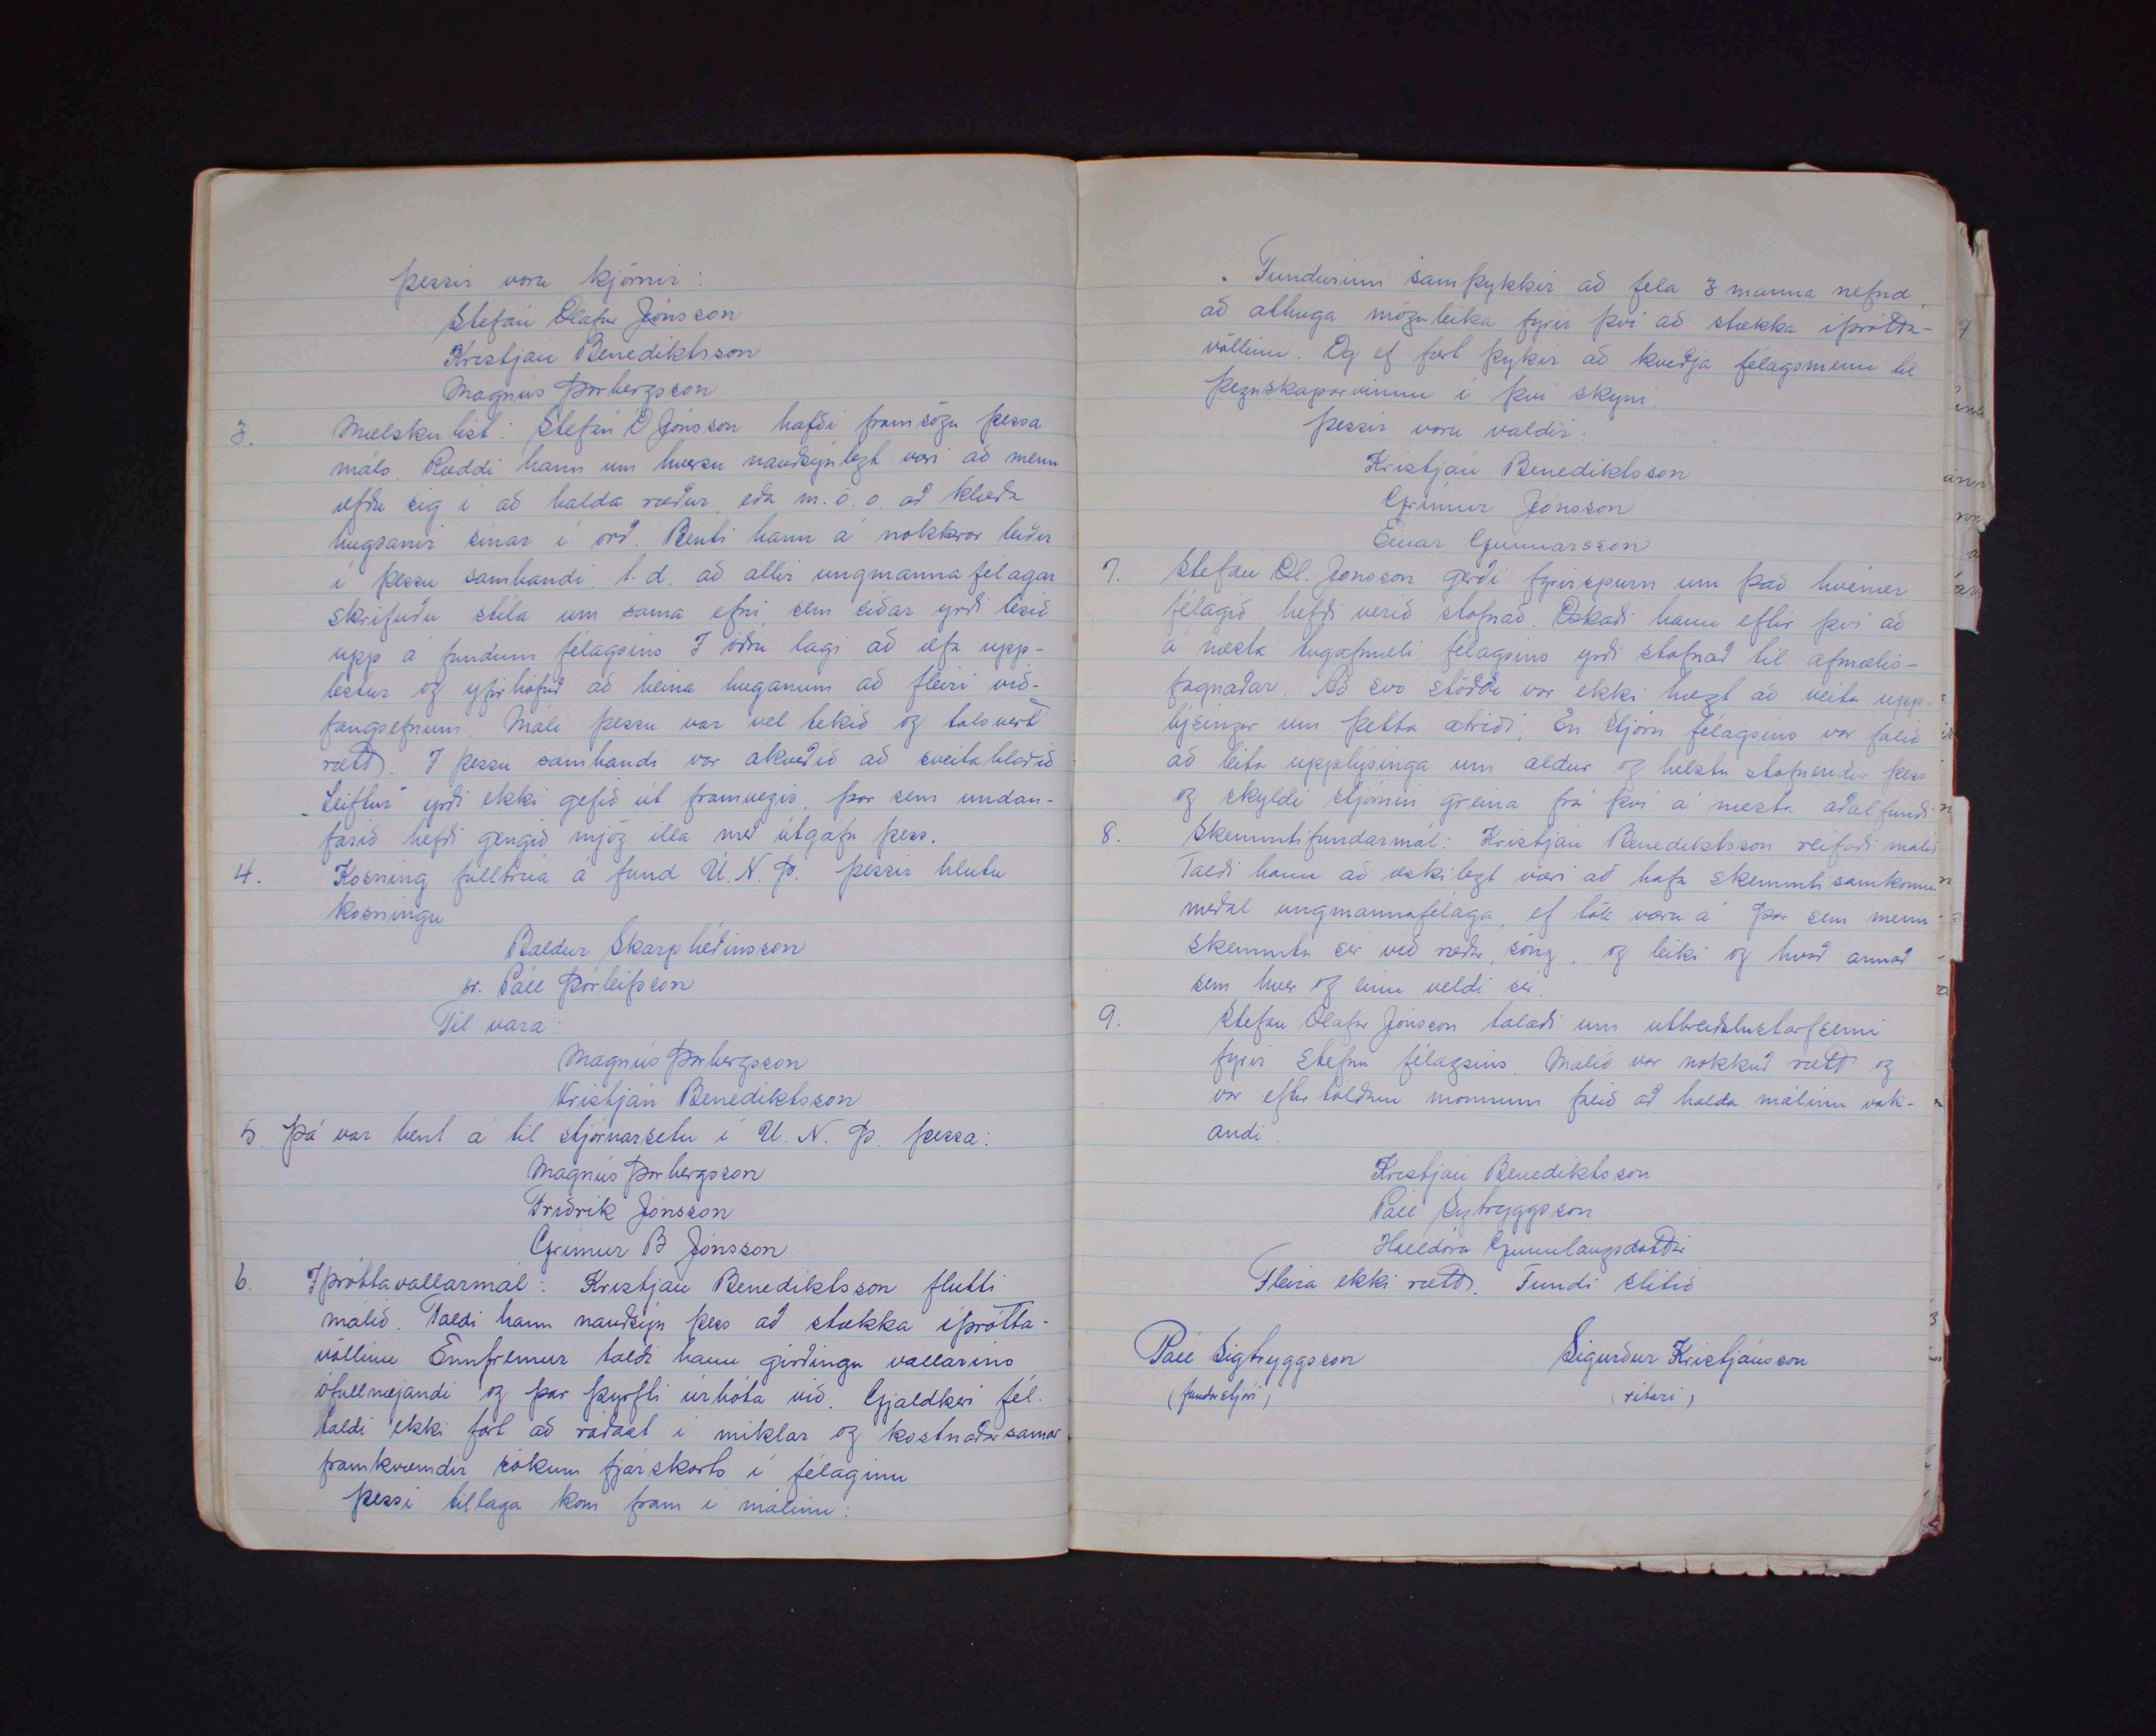 þessir voru kjörnir:
Stefán Ólafur Jónsson
Kristján Benediktsson
Magnús Þorbergsson
3. Mælskulist: Stefán Ó Jónsson hafði framsögu þessa
máls. Ræddi hann um hversu nauðsynlegt væri að menn
æfðu sig í að halda ræður, eða m.ö.o. að klæða
hugsanir sínar í orð. Benti hann á nokkrar leiðir
í þessu sambandi. t.d. að allir ungmannafélagar
skrifuðu stíla um sama efni, sem síðar yrði lesið
upp á fundum félagsins Í öðru lagi að æfa upp-
lestur og yfirhöfuð að beina huganum að fleiri við-
fangsefnum. Máli þessu var vel tekið og talsvert
rætt. Í þessu sambandi var ákveðið að sveitablaðið
„Leiftur" yrði ekki gefið út framvegis, þar sem undan-
farið hefði gengið mjög illa með útgáfu þess.
4. Kosning fulltrúa á fund U.N.Þ. þessir hlutu
kosningu
Baldur Skarphéðinsson
sr. Páll Þorleifsson
Til vara:
Magnús Þorbergsson
Kristján Benediktsson
5. Þá var bent á til stjórnarsetu í U.N.Þ. þessa:
Magnús Þorbergsson
Friðrik Jónsson
Grímur B Jónsson
6. Íþróttavallarmál: Kristján Benediktsson flutti
málið. Taldi hann nauðsyn þess að stækka íþrótta-
völlinn Ennfremur taldi hann girðingu vallarins
ófullnægjandi og þar þyrfti úrbóta við. Gjaldkeri fél.
taldi ekki fært að ráðast í miklar og kostnaðarsamar
framkvæmdir sökum fjárskorts í félaginu
Þessi tillaga kom fram í málinu:
„Fundurinn samþykkir að fela 3 manna nefnd,
að athuga möguleika fyrir því að stækka íþrótta-
völlinn. Og ef fært þykir að kveðja félagsmenn til
þegnskaparvinnu í því skyni.
Þessir voru valdir:
Kristján Benediktsson
Grímur Jónsson
Einar Gunnarsson
7. Stefán Ól. Jónsson gerði fyrirspurn um það hvenær
félagið hefði verið stofnað. Óskaði hann eftir því að
á næsta tugafmæli félagsins yrði stofnað til afmælis-
fagnaðar. Að svo stöddu var ekki hægt að veita upp-
lýsingar um þetta atriði. En stjórn félagsins var falið
að leita upplýsinga um aldur og helstu stofnendur þess
og skyldi stjórnin greina frá því á næsta aðalfundi
8. Skemmtifundarmál: Kristján Benediktsson reifaði málið
Taldi hann að æskilegt væri að hafa skemmtisamkomu
meðal ungmannafélaga, ef tök væru á. Þar sem menn
skemmtu sér við ræður, söng, og leiki og hvað annað
sem hver og einn veldi sér.
9. Stefán Ólafur Jónsson talaði um útbreiðslustarfsemi
fyrir stefnu félagsins. Málið var nokkuð rætt og
var eftirtöldum mönnum falið að halda málinu vak-
andi.
Kristján Benediktsson
Páll Sigtryggsson
Halldóra Gunnlaugsdóttir
Fleira ekki rætt. Fundi slitið
Páll Sigtryggsson Sigurður Kristjánsson
(fundarstjóri) (ritari)